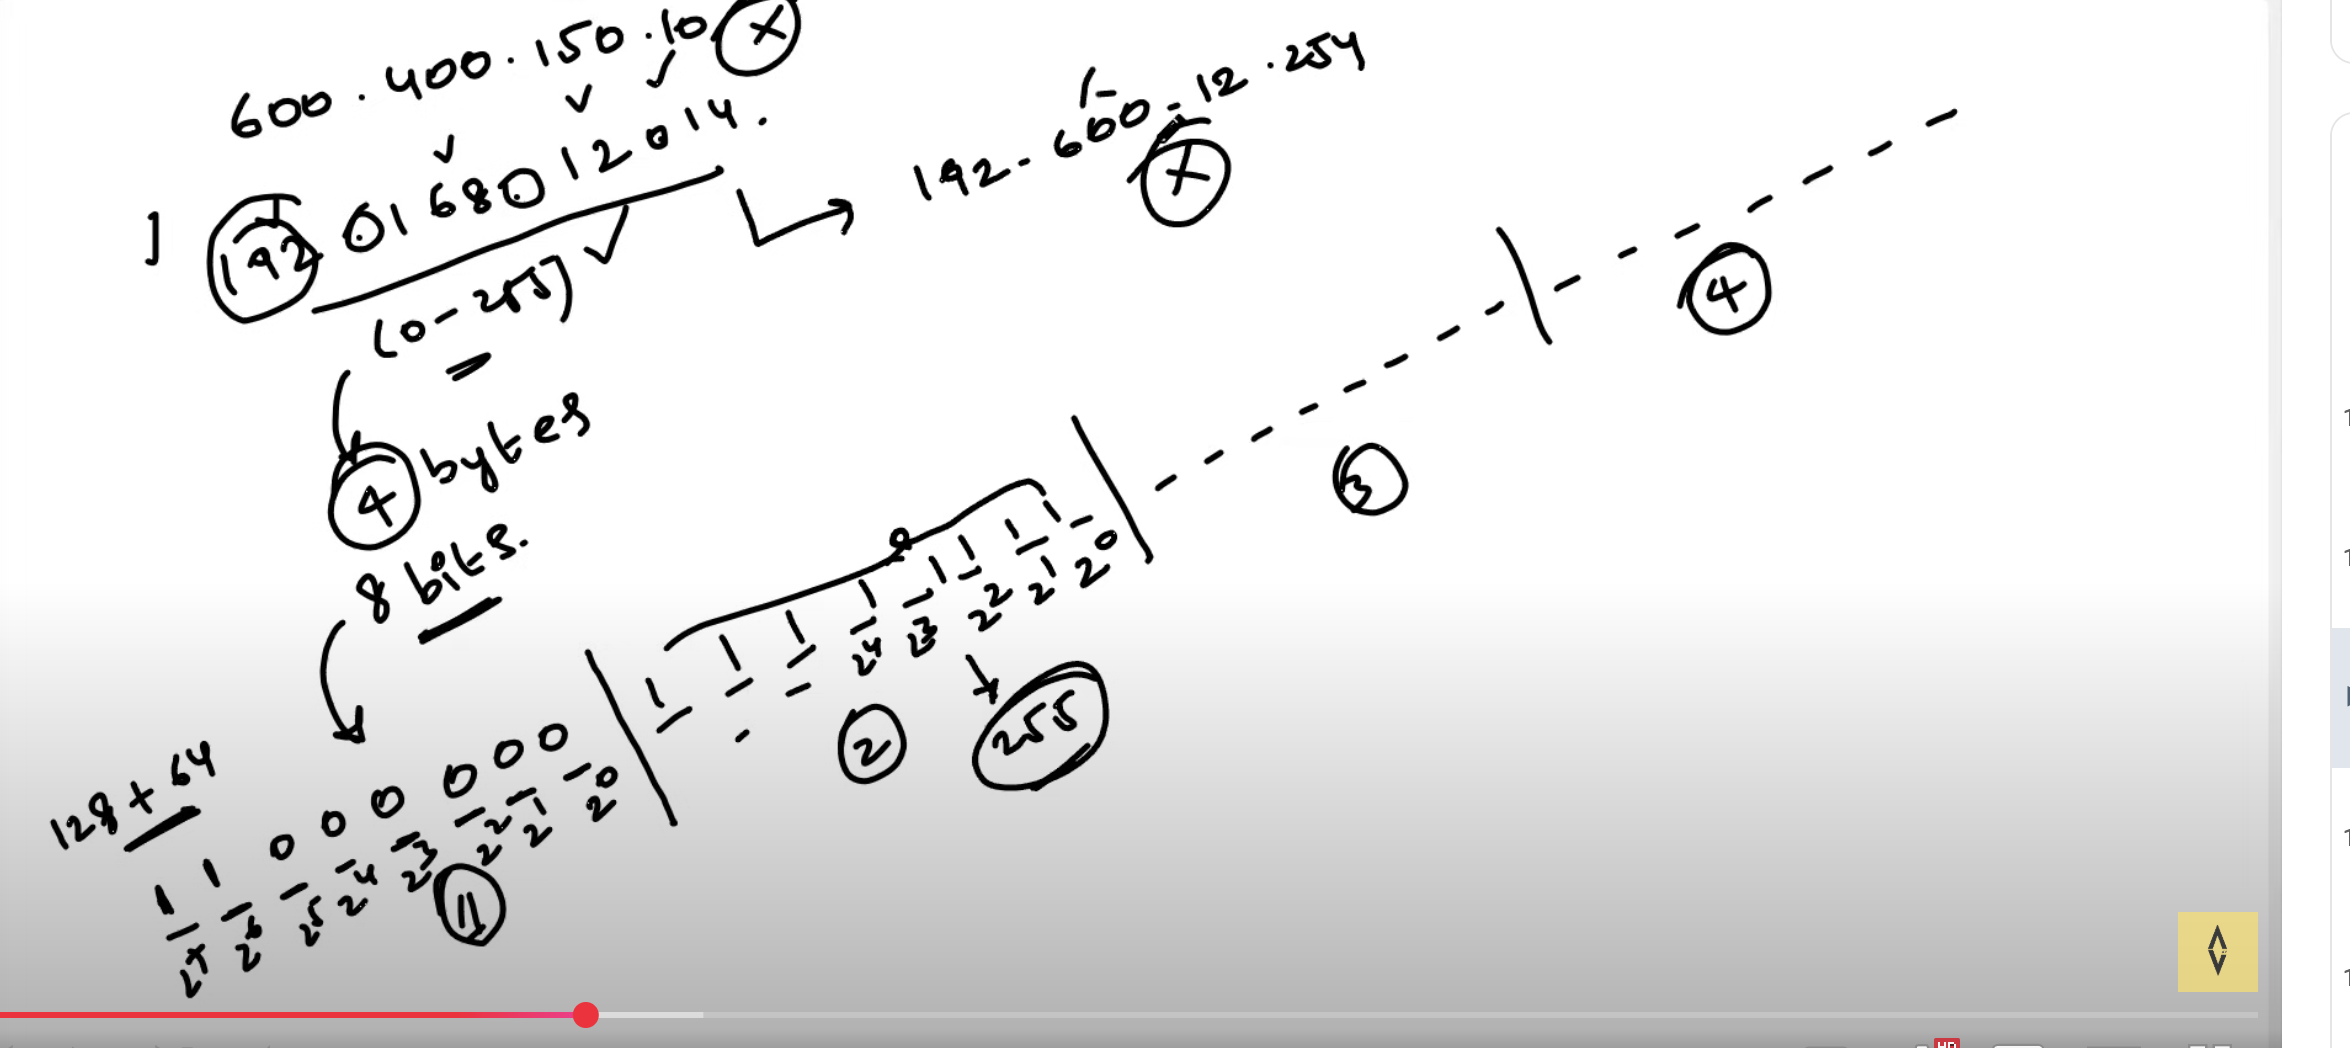 600.400.150.10 X
192.168.12.14.
192.600.12.254
X
(0-255)
4 bytes
8 bits.
128+64
1 1 0 0 0 0 0 0
2^7 2^6 2^5 2^4 2^3 2^2 2^1 2^0
1 1 1 1 1 1 1 1
2^4 2^3 2^2 2^1 2^0
255
2
3
4
HD